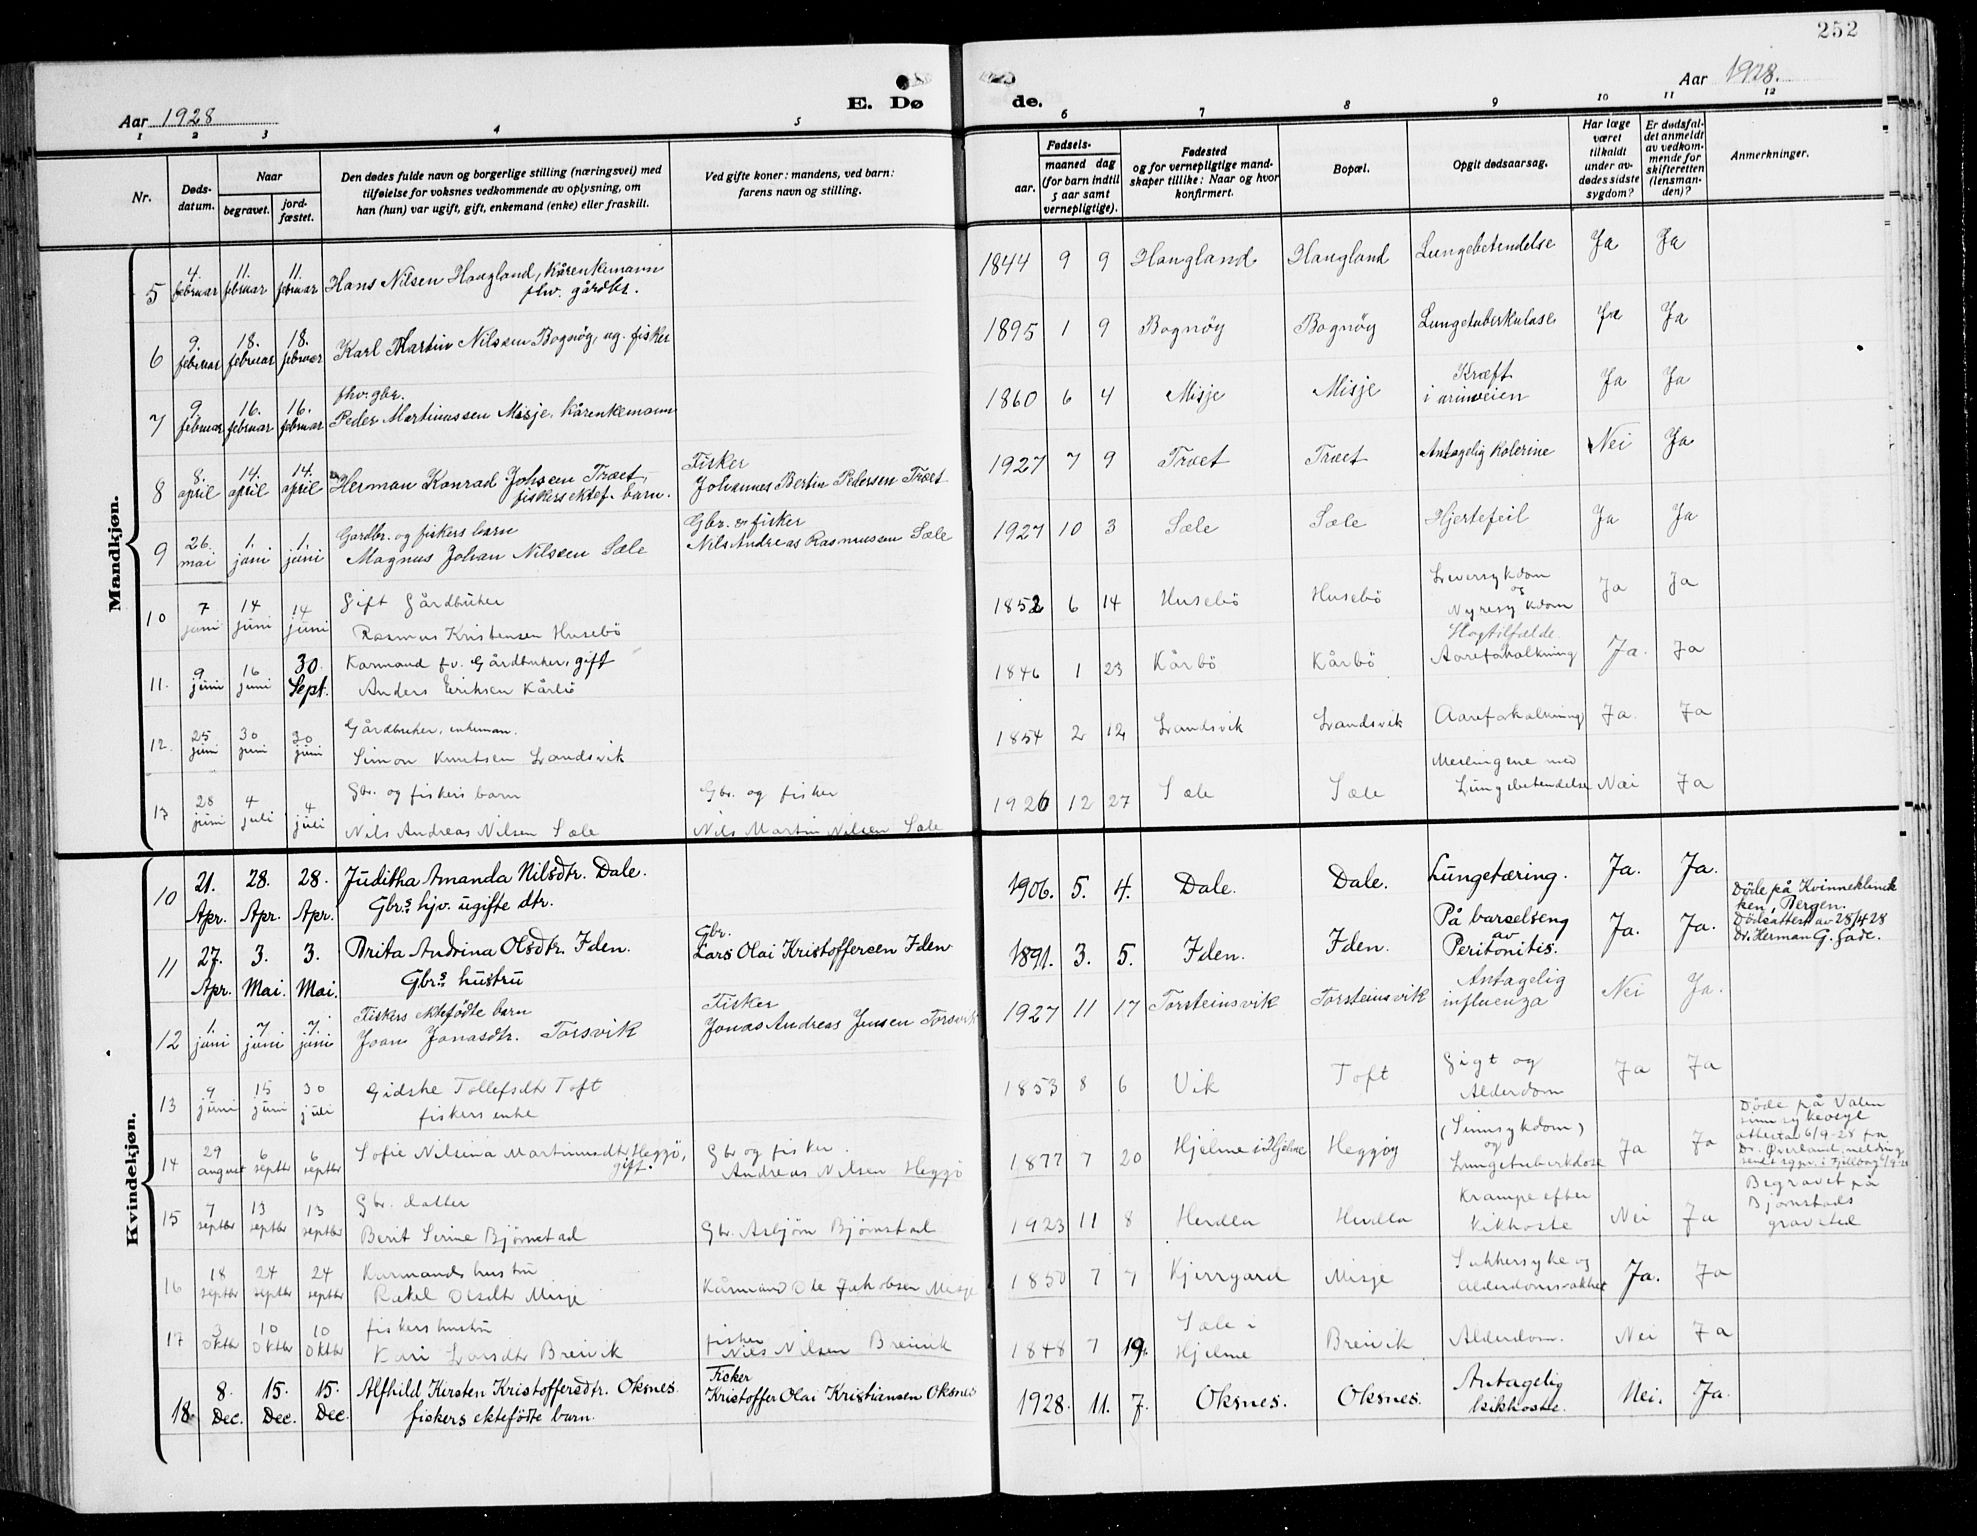 252
Aar 1928
E. Dø
de.
Aar 1928.
1 2 3 4 5 6 7 8 9 10 11 12
Nr.
Døds-
datum.
Naar
begravet.
jord-
fæstet.
Den dødes fulde navn og borgerlige stilling (næringsvei) med
tilføielse for voksnes vedkommende av oplysning, om
han (hun) var ugift, gift, enkemand (enke) eller fraskilt.
Ved gifte koner: mandens, ved barn:
farens navn og stilling.
Fødsels-
aar.
maaned dag
(for barn indtil
5 aar samt
vernepligtige).
Fødested
og for vernepligtige mand-
skaper tillike: Naar og hvor
konfirmert.
Bopæl.
Opgit dødsaarsag.
Har læge
været
tilkaldt
under av-
dødes sidste
sygdom?
Er dødsfal-
det anmeldt
av vedkom-
mende for
skifteretten
(lensman-
den)?
Anmerkninger.
Mandkjøn.
5 4. februar 11. februar 11. februar Hans Nilsen Haagland, kårenkemann
fhv. gårdbr.
1844 9 9 Haugland Haugland Lungebetendelse Ja Ja
6 9. februar 18. februar 18. februar Karl Martin Nilsen Bognøy, ug. fisker
1895 1 9 Bognøy Bognøy Lungetuberkulose Ja Ja
7 9. februar 16. februar 16. februar fhv. gbr.
Peder Martinussen Misje, kårenkemann
1860 6 4 Misje Misje Kræft
i urinveien Ja Ja
8 8. april 14. april 14. april Herman Konrad Johsen Træet,
fiskers ektef. barn.
Fisker
Johannes Bertin Pedersen Træet
1927 7 9 Træet Træet Antagelig kolerine Nei Ja
9 26. mai 1. juni 1. juni Gardbr. og fiskers barn
Magnus Johan Nilsen Sæle
Gbr. og fisker
Nils Andreas Rasmussen Sæle
1927 10 3 Sæle Sæle Hjertefeil Ja Ja
10 7 juni 14 juni 14 juni Gift Gårdbruker
Rasmus Kristensen Husebö
1852 6 14 Husebö Husebö Leversykdom
og
Nyresykdom Ja Ja
11. 9 juni 16 juni 30 Sept. Kårmand fv. Gårdbruker, gift
Anders Eriksen Kårbö
1846 1 23 Kårbö Kårbö Slagtilfælde
Aareforkalkning Ja. Ja
12. 25 juni 30 juni 30 juni Gårdbruker, enkeman.
Simon Knutsen Landsvik
1854 2 12 Landsvik Landsvik Aareforkalkning Ja. Ja
13 28 juni 4 juli 4 juli Gbr. og fiskers barn
Nils Andreas Nilsen Sæle
Gbr. og fisker
Nils Martin Nilsen Sæle
1926 12 27 Sæle Sæle Meslingene med
Lungebetendelse Nei Ja
Kvindekjøn.
10 21. Apr. 28. Apr. 28. Apr. Juditha Amanda Nilsdtr. Dale.
Gbr.s hjv. ugifte dtr.
1906. 5. 4. Dale. Dale. Lungetæring. Ja. Ja.
11 27. Apr. 3. Mai. 3. Mai. Brita Andrina Olsdtr. Iden.
Gbr.s hustru
Gbr.
Lars Olai Kristoffersen Iden
1891. 3. 5. Iden. Iden. På barselseng
av
Peritonitis. Ja. Ja. Döde på Kvinneklinik
ken, Bergen.
Dödsattest av 28/4 28
Dr. Herman G. Gade.
12 1. juni 7. juni 7. juni Fiskers ektefödte barn
Joan Jonasdtr. Torsvik
Fisker
Jonas Andreas Jensen Torsvik
1927 11 17 Torsteinsvik Torsteinsvik Antagelig
influenza Nei Ja.
13 9 juni 15 juni 30 juli Gidske Tollefsdtr Toft
fiskers enke
1853 8 6 Vik Toft Gigt og
Alderdom Ja Ja
14 29 august 6 septbr 6 septbr Sofie Nilsina Martinusdtr Heggö,
gift.
Gbr og fisker.
Andreas Nilsen Heggö
1877 7 20 Hjelme i Hjelme Heggöy (Sinnsykdom)
og
Lungetuberkulose Ja Ja Döde på Valen
sinnsyke asyl
attesta 6/9-28 fra
Dr. Øverland, melding
15 7 septbr 13 septbr 13 septbr Gbr. datter
Berit Serine Bjørnstad
Gbr. Asbjörn Bjørnstad
1923 11 8 Herdla Herdla Krampe efter
Kikhoste Nei Ja Begravet på
Bjørnstads
gravsted
16 18 septbr 24 septbr 24 septbr Kårmands hustru
Rakel Olsdtr Misje
Kårmand Ole Jakobsen Misje
1850 7 7 Kjerrgard Misje Sukkersyke og
Alderdomsvakhet Ja. Ja
17 3 oktbr 10 oktbr 10 oktbr fiskers hustru
Kari Larsdtr Breivik
fisker
Nils Nilsen Breivik
1848 7 19. Sæle i
Hjelme Breivik Alderdom. Nei Ja
18. 8. Dec. 15. Dec. 15. Dec. Alfhild Kirsten Kristoffersdtr. Oksnes.
fiskers ektefödte barn.
Fisker
Kristoffer Olai Kristiansen Oksnes
1928. 11. 7. Oksnes. Oksnes. Antagelig
kikhoste. Nei. Ja.